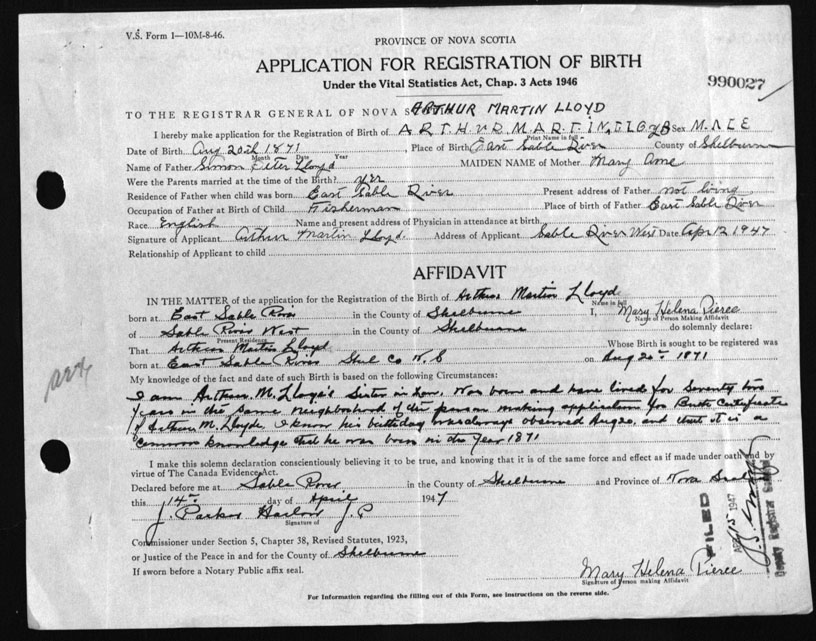 V.S. Form 1—10M-8-46.
PROVINCE OF NOVA SCOTIA
APPLICATION FOR REGISTRATION OF BIRTH
Under the Vital Statistics Act, Chap. 3 Acts 1946
990027
TO THE REGISTRAR GENERAL OF NOVA S ARTHUR MARTIN LLOYD
I hereby make application for the Registration of Birth of ARTHUR MARTIN LLOYD Sex MALE
Print Name in full
Date of Birth Aug 20th 1871, Place of Birth East Sable River County of Shelburne
Month Date Year
Name of Father Simon Peter Lloyd MAIDEN NAME of Mother Mary Ame
Were the Parents married at the time of the Birth? yes
Residence of Father when child was born East Sable River Present address of Father not living
Occupation of Father at Birth of Child Fisherman Place of birth of Father East Sable River
Race English Name and present address of Physician in attendance at birth
Signature of Applicant Arthur Martin Lloyd. Address of Applicant Sable River West Date Apr 12 1947
Relationship of Applicant to child
AFFIDAVIT
IN THE MATTER of the application for the Registration of the Birth of Arthur Martin Lloyd
Name in full
born at East Sable River in the County of Shelburne I, Mary Helena Pierce
Name of Person Making Affidavit
of Sable River West in the County of Shelburne do solemnly declare:
Present Residence
That Arthur Martin Lloyd Whose Birth is sought to be registered was
born at East Sable River Shel Co N.S on Aug 20th 1871
My knowledge of the fact and date of such Birth is based on the following Circumstances:
I am Arthur M. Lloyd's Sister in Law. Was born and have lived for Seventy two
years in the same neighborhood of the person making application for Birth Certificate
of Arthur M. Lloyde, I know his birthday was always observed Aug 20, and that it is a
common knowledge that he was born in the year 1871
I make this solemn declaration conscientiously believing it to be true, and knowing that it is of the same force and effect as if made under oath and by
virtue of The Canada Evidence Act.
Declared before me at Sable River in the County of Shelburne and Province of Nova Scotia
this 14th day of April 1947
J. Parker Harlow J.P
Signature of
Commissioner under Section 5, Chapter 38, Revised Statutes, 1923,
or Justice of the Peace in and for the County of Shelburne
If sworn before a Notary Public affix seal.
FILED
APR 15 1947
Deputy Registrar General
Mary Helena Pierce
Signature of Person making Affidavit
For Information regarding the filling out of this Form, see instructions on the reverse side.